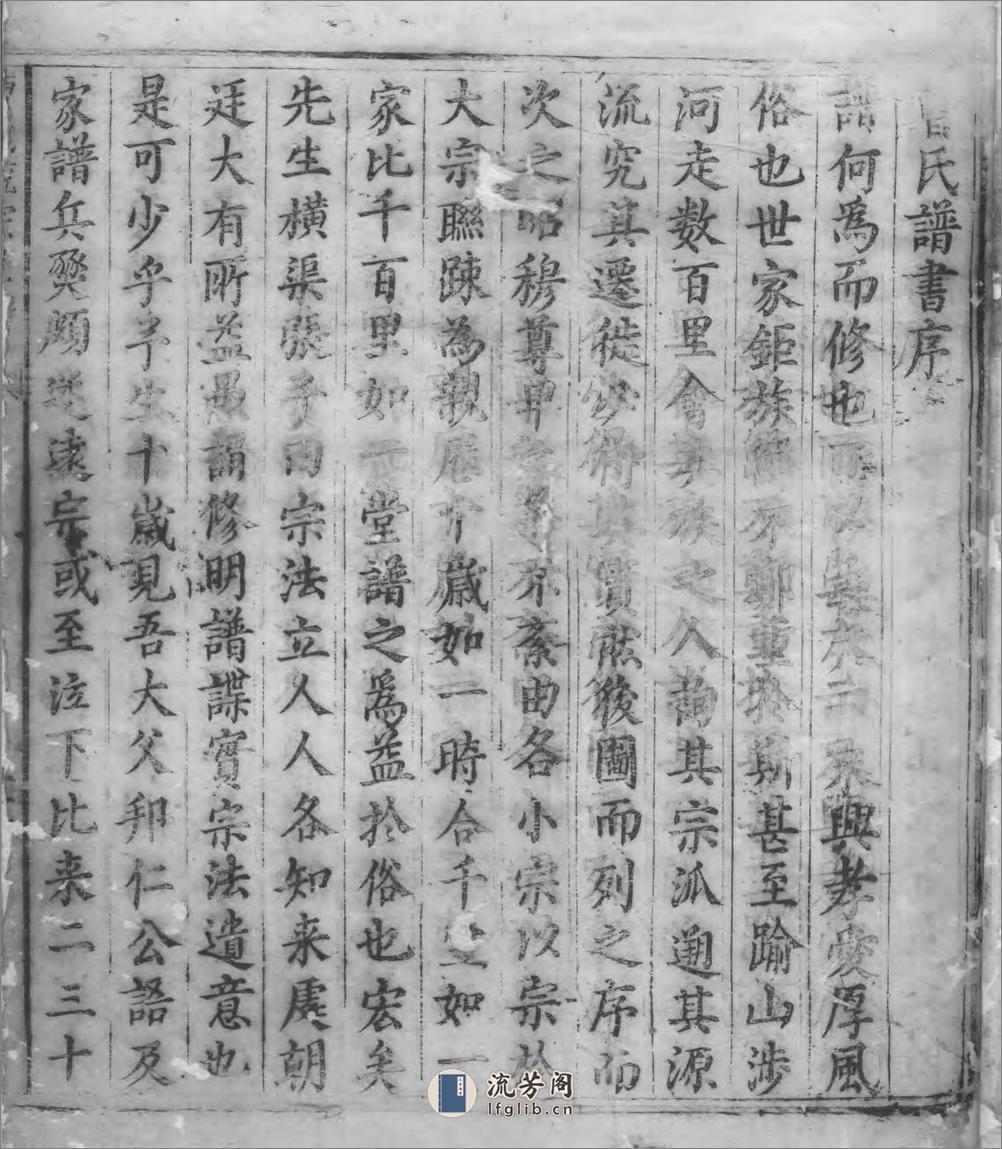 氏譜書序
譜何爲而修也所以興孝愛厚風
俗也世家鉅族不重於斯甚至踰山涉
河走數百里會其族之久詢其宗派遡其源
流究其遷徙必得其實然後圖而列之序而
次之昭穆尊卑不紊曲各小宗以宗於
大宗聯踈為親歷千歲如一時合千如一
家比千百里如一堂譜之為益於俗也宏矣
先生橫渠張子曰宗法立人人各知来處朝
廷大有所益愚謂修明譜諜實宗法遺意也
是可少乎予生十歲見吾大父邦仁公語及
家譜兵燹頗遠宗或至泣下比来二三十
流芳阁
lfglib.cn